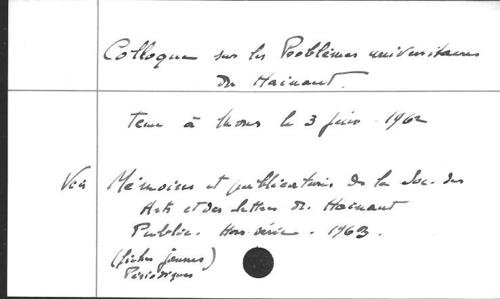 Colloque sur les Problèmes universitaires
du Hainaut.
tenu à Mons le 3 juin 1962
Voir Mémoires et publications de la Soc. des
Arts et des lettres du Hainaut
Public. Hors série. 1963.
(fiches jaunes)
Périodiques